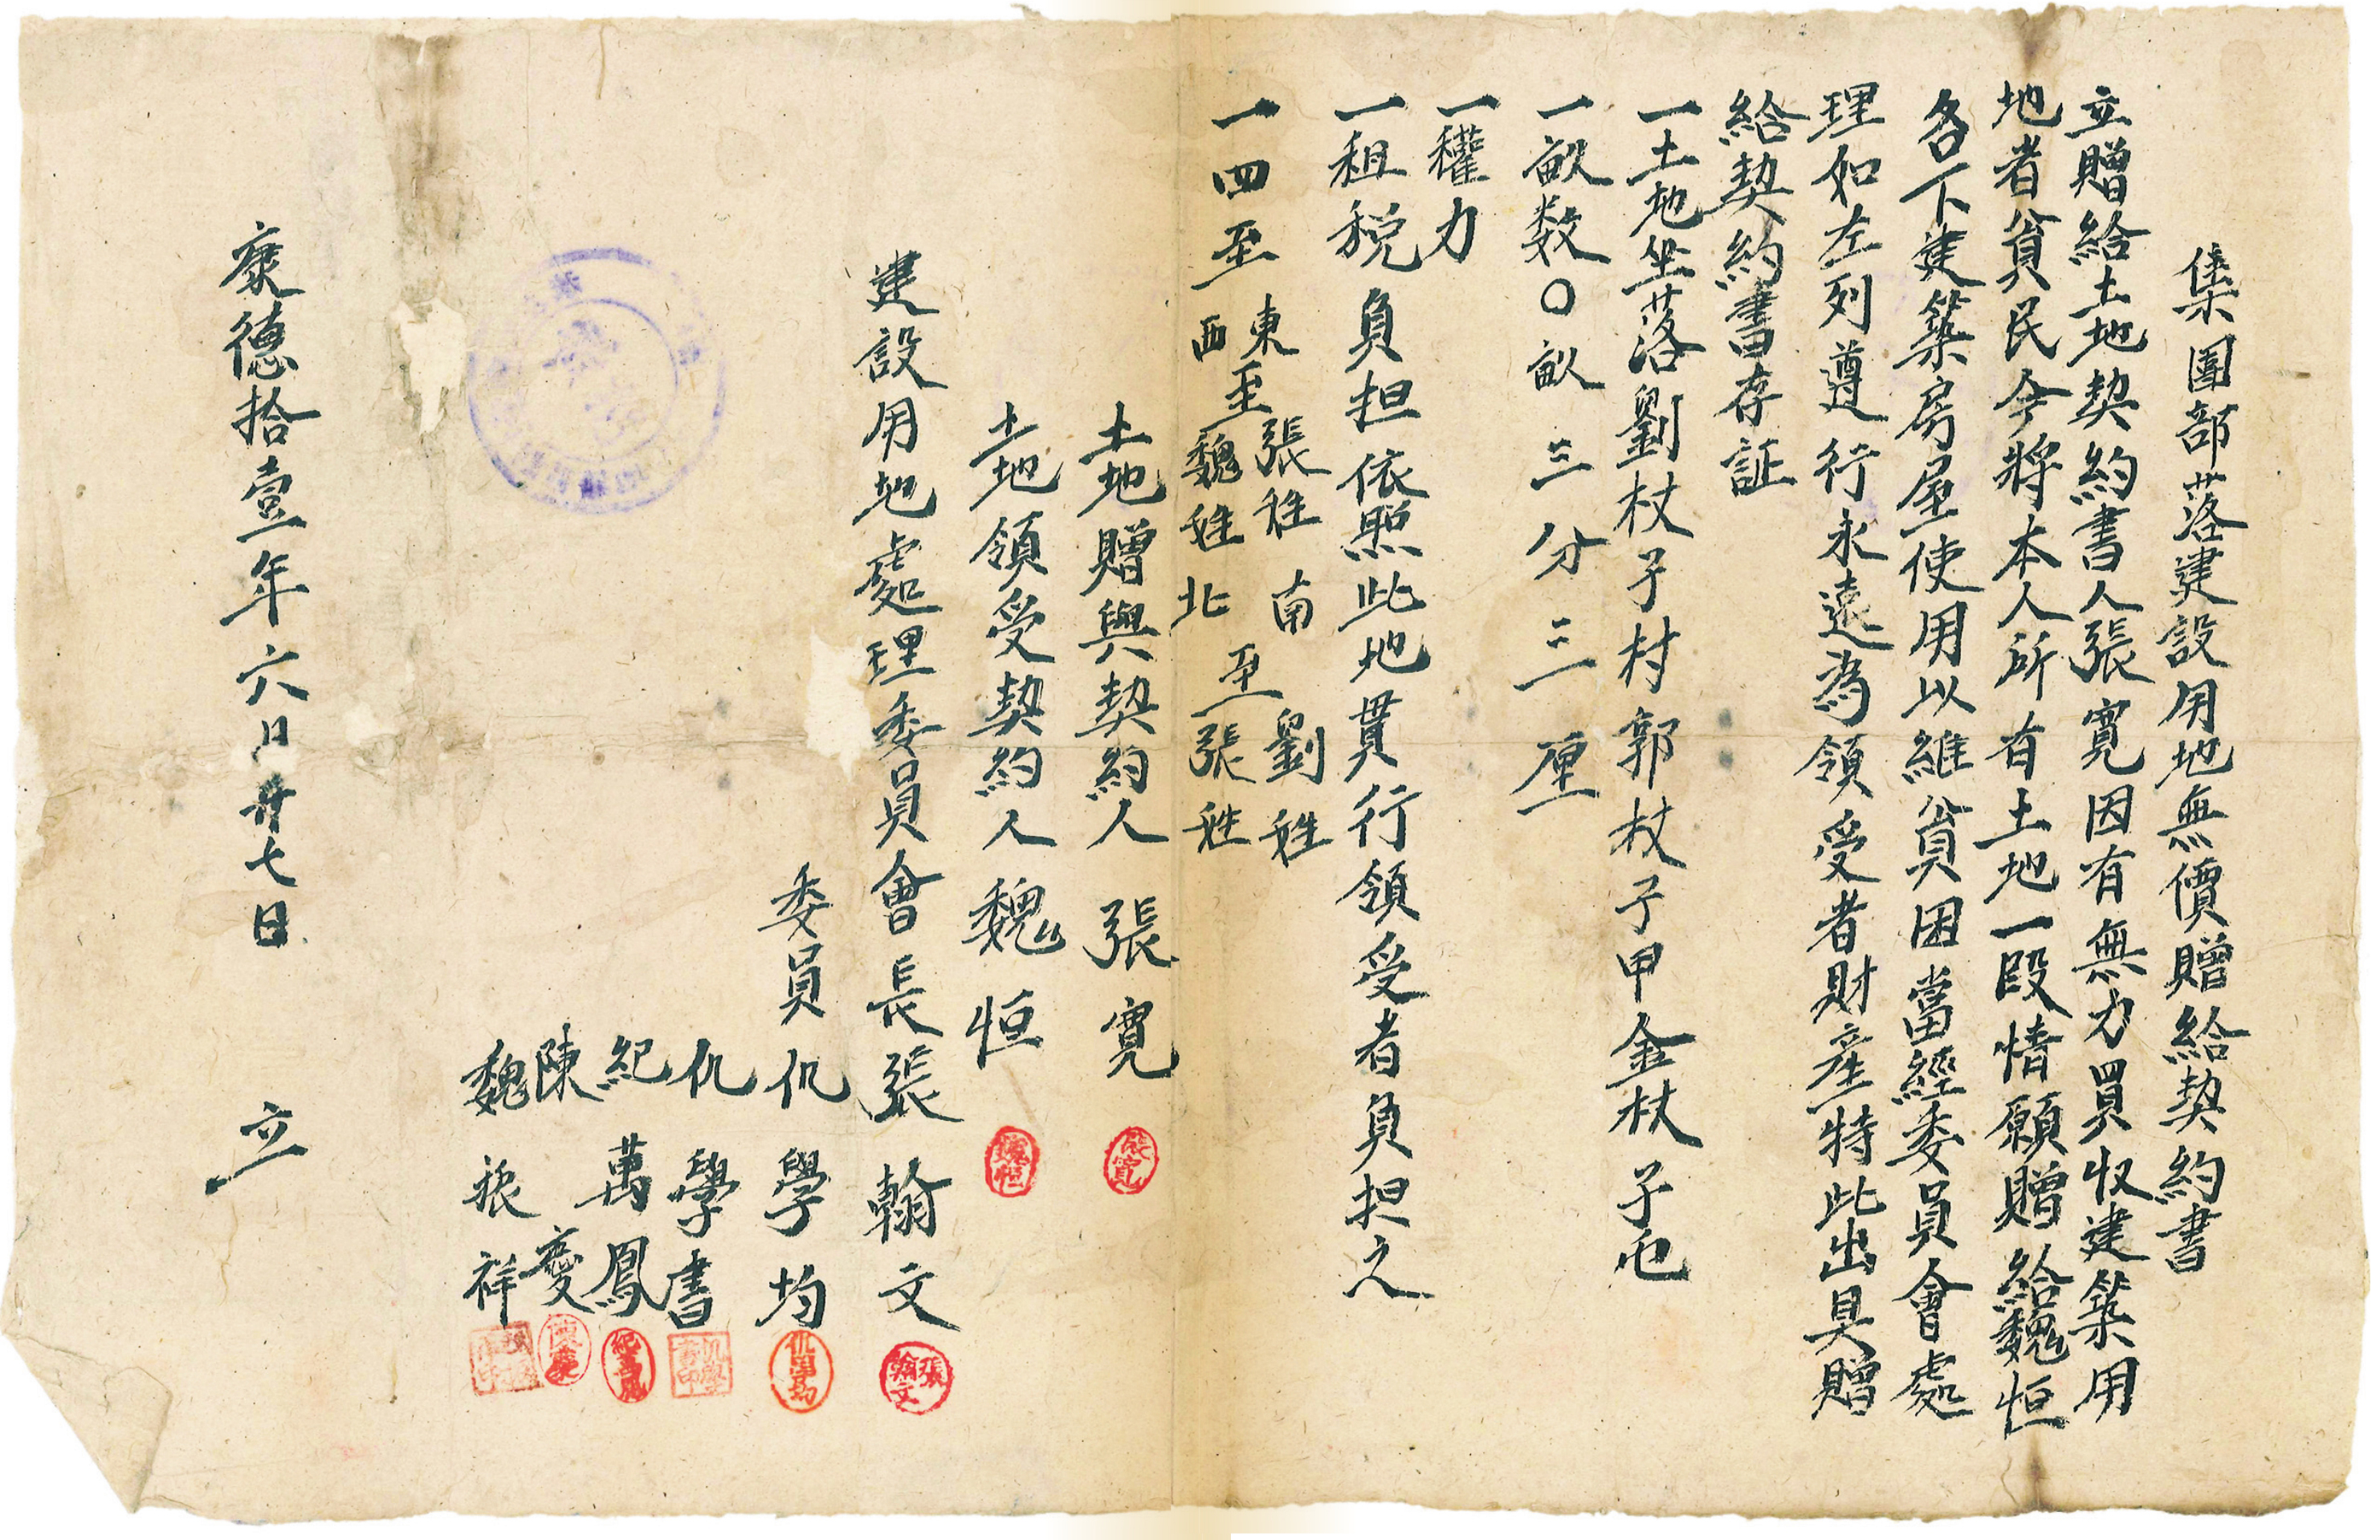 集團部落建設用地無價贈給契約書
立贈給土地契約書人張寬因有無力買收建築用
地者貧民今將本人所有土地一段情願贈給魏恒
名下建築房屋使用以維貧困當經委員會處
理如左列遵行永遠為領受者財產特此出具贈
給契約書存証
一土地坐落劉杖子村郭杖子甲金杖子屯
一畝数〇畝三分三厘
一權力
一租税負担依照此地貫行領受者負担之
一四至 東至張姓 南至劉姓
西至魏姓 北至張姓
土地贈與契約人 張寬
土地領受契約人 魏恒
建設用地處理委員會長張翰文
委員仇學均
仇學書
紀萬鳳
陳慶
魏振祥
康德拾壹年六月廿七日 立
張寬
魏恒
張翰文